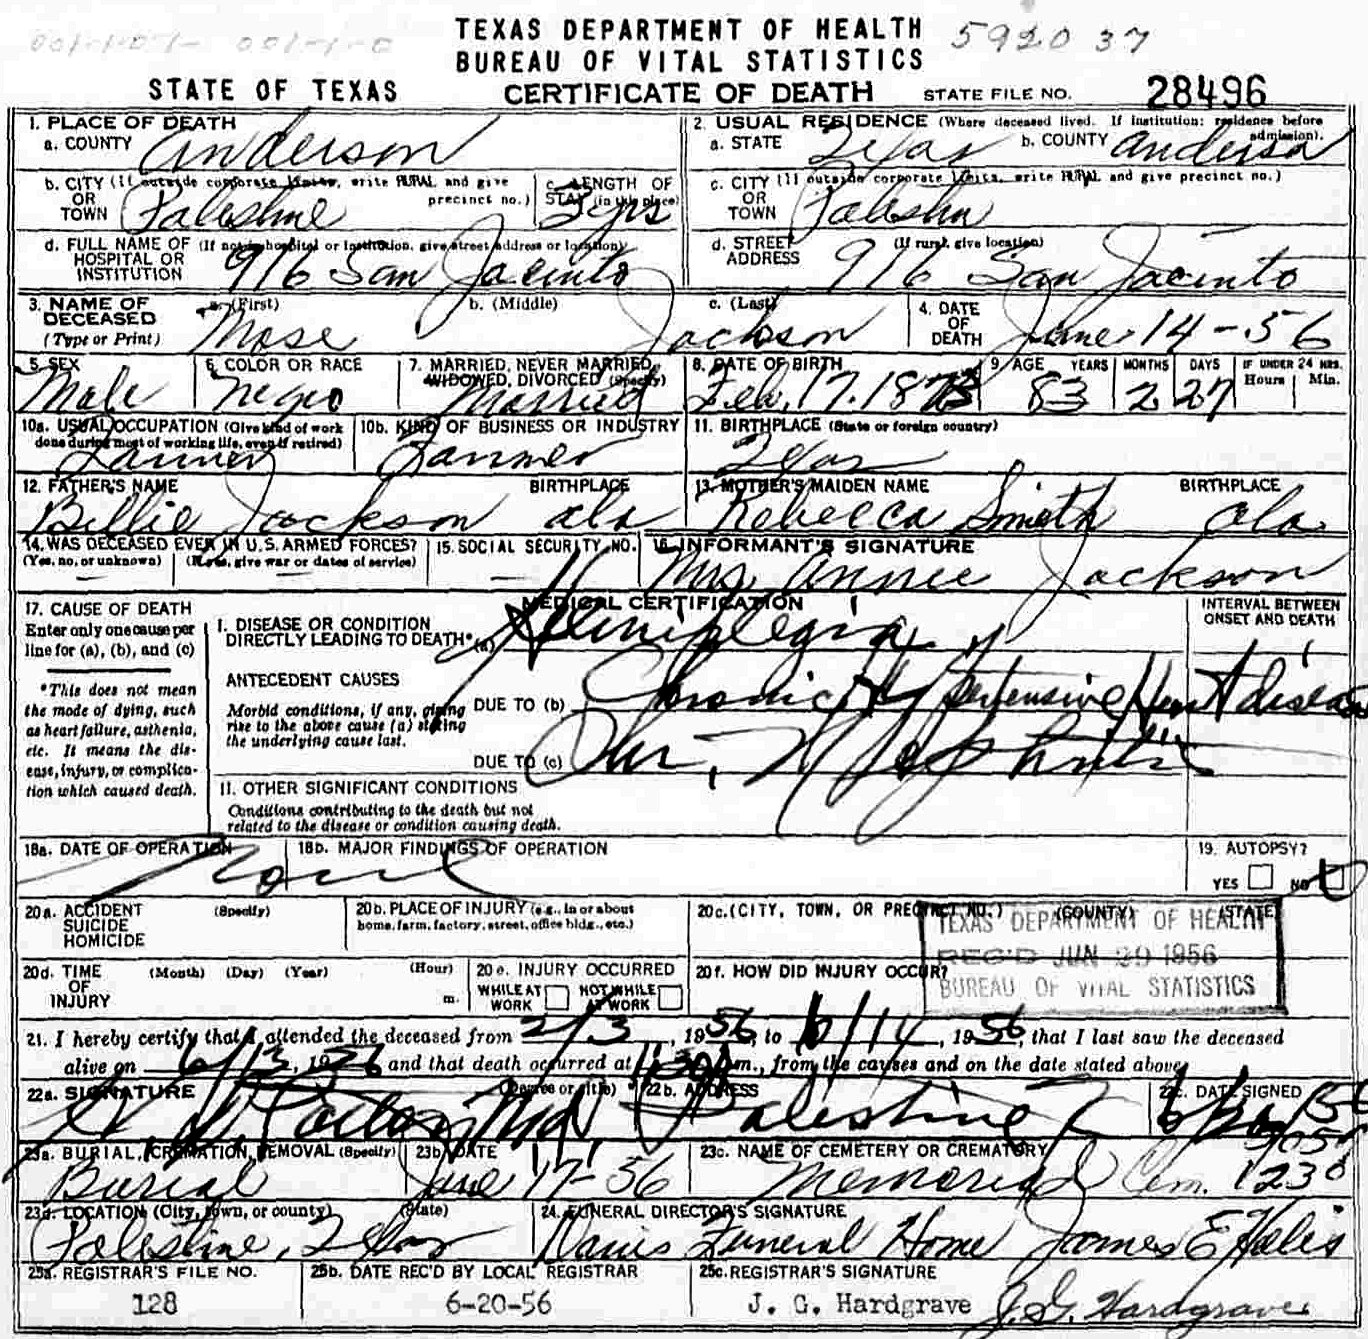 TEXAS DEPARTMENT OF HEALTH
592037
BUREAU OF VITAL STATISTICS
STATE OF TEXAS CERTIFICATE OF DEATH STATE FILE NO. 28496
1. PLACE OF DEATH
a. COUNTY Anderson
2. USUAL RESIDENCE (Where deceased lived. If institution: residence before admission).
a. STATE Texas b. COUNTY Anderson
b. CITY (If outside corporate limits, write RURAL and give precinct no.)
OR
TOWN Palestine
c. LENGTH OF
STAY (in this place) 3 yrs
c. CITY (If outside corporate limits, write RURAL and give precinct no.)
OR
TOWN Palestin
d. FULL NAME OF (If not in hospital or institution, give street address or location)
HOSPITAL OR
INSTITUTION 916 San Jacinto
d. STREET (If rural, give location)
ADDRESS 916 San Jacinto
3. NAME OF DECEASED
(Type or Print)
a. (First) Mose
b. (Middle)
c. (Last) Jackson
4. DATE OF DEATH June 14-56
5. SEX Male
6. COLOR OR RACE Negro
7. MARRIED, NEVER MARRIED,
WIDOWED, DIVORCED (Specify) Married
8. DATE OF BIRTH Feb. 17. 1873
9. AGE YEARS 83 MONTHS 2 DAYS 27 IF UNDER 24 HRS. Hours Min.
10a. USUAL OCCUPATION (Give kind of work
done during most of working life, even if retired)
Farmer
10b. KIND OF BUSINESS OR INDUSTRY
Farmer
11. BIRTHPLACE (State or foreign country)
Texas
12. FATHER'S NAME BIRTHPLACE
Billie Jackson ala
13. MOTHER'S MAIDEN NAME BIRTHPLACE
Rebecca Smith ala.
14. WAS DECEASED EVER IN U.S. ARMED FORCES?
(Yes, no, or unknown) (If yes, give war or dates of service)
15. SOCIAL SECURITY NO.
16. INFORMANT'S SIGNATURE
Mrs Annie Jackson
17. CAUSE OF DEATH
Enter only one cause per
line for (a), (b), and (c)
*This does not mean
the mode of dying, such
as heart failure, asthenia,
etc. It means the dis-
ease, injury, or complica-
tion which caused death.
MEDICAL CERTIFICATION
INTERVAL BETWEEN
ONSET AND DEATH
I. DISEASE OR CONDITION
DIRECTLY LEADING TO DEATH* (a) Hemiplegia
ANTECEDENT CAUSES
Morbid conditions, if any, giving
rise to the above cause (a) stating
the underlying cause last.
DUE TO (b) Chronic Hypertensive Heart disease
DUE TO (c) Chr. Nephritis
II. OTHER SIGNIFICANT CONDITIONS
Conditions contributing to the death but not
related to the disease or condition causing death.
18a. DATE OF OPERATION None
18b. MAJOR FINDINGS OF OPERATION
19. AUTOPSY?
YES NO
20a. ACCIDENT (Specify)
SUICIDE
HOMICIDE
20b. PLACE OF INJURY (e.g., in or about
home, farm, factory, street, office bldg., etc.)
20c. (CITY, TOWN, OR PRECINCT NO.) (COUNTY) (STATE)
TEXAS DEPARTMENT OF HEALTH
REC'D JUN 29 1956
BUREAU OF VITAL STATISTICS
20d. TIME (Month) (Day) (Year) (Hour)
OF
INJURY m.
20e. INJURY OCCURRED
WHILE AT WORK NOT WHILE AT WORK
20f. HOW DID INJURY OCCUR?
21. I hereby certify that I attended the deceased from 2/3, 1956, to 6/14, 1956, that I last saw the deceased
alive on 6/13, 1956 and that death occurred at m., from the causes and on the date stated above.
22a. SIGNATURE (Degree or title)
M.D.
22b. ADDRESS
Palestine
22c. DATE SIGNED
23a. BURIAL, CREMATION, REMOVAL (Specify)
Burial
23b. DATE
June 17-56
23c. NAME OF CEMETERY OR CREMATORY
Memorial Cem.
1230
23d. LOCATION (City, town, or county) (State)
Palestine, Texas
24. FUNERAL DIRECTOR'S SIGNATURE
Davis Funeral Home James E
25a. REGISTRAR'S FILE NO.
128
25b. DATE REC'D BY LOCAL REGISTRAR
6-20-56
25c. REGISTRAR'S SIGNATURE
J. G. Hardgrave J. G. Hardgrave